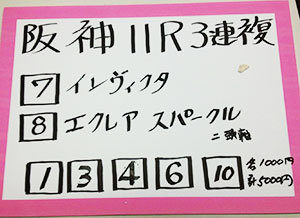 阪神11R3連複
7 インヴィクタ
8 エクレアスパークル
二頭軸
1 3 4 6 10 各1000円
計5000円